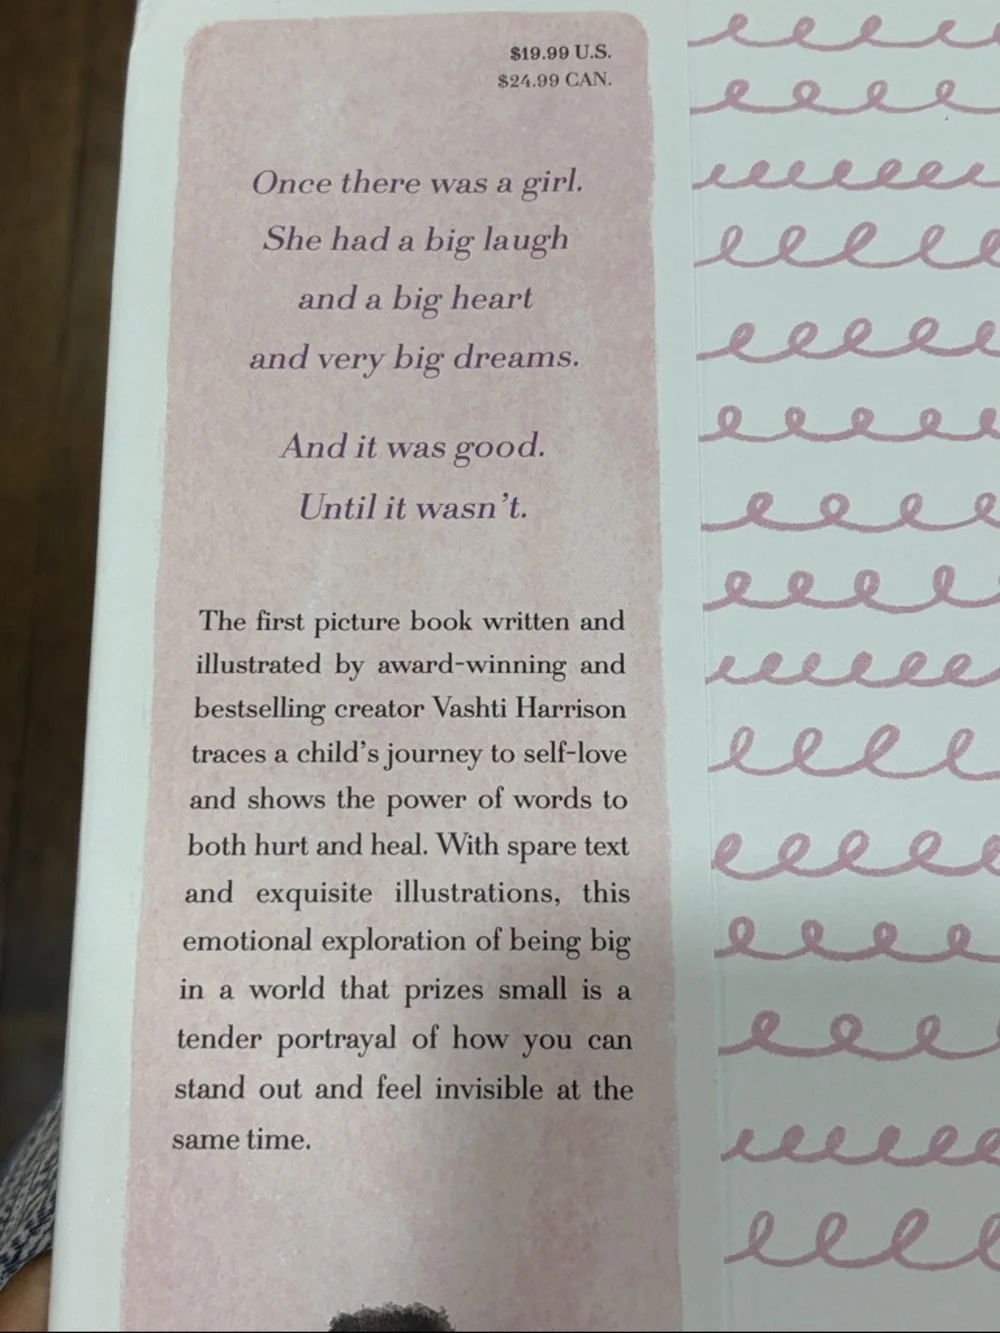 $19.99 U.S.
$24.99 CAN.
Once there was a girl.
She had a big laugh
and a big heart
and very big dreams.
And it was good.
Until it wasn't.
The first picture book written and
illustrated by award-winning and
bestselling creator Vashti Harrison
traces a child's journey to self-love
and shows the power of words to
both hurt and heal. With spare text
and exquisite illustrations, this
emotional exploration of being big
in a world that prizes small is a
tender portrayal of how you can
stand out and feel invisible at the
same time.